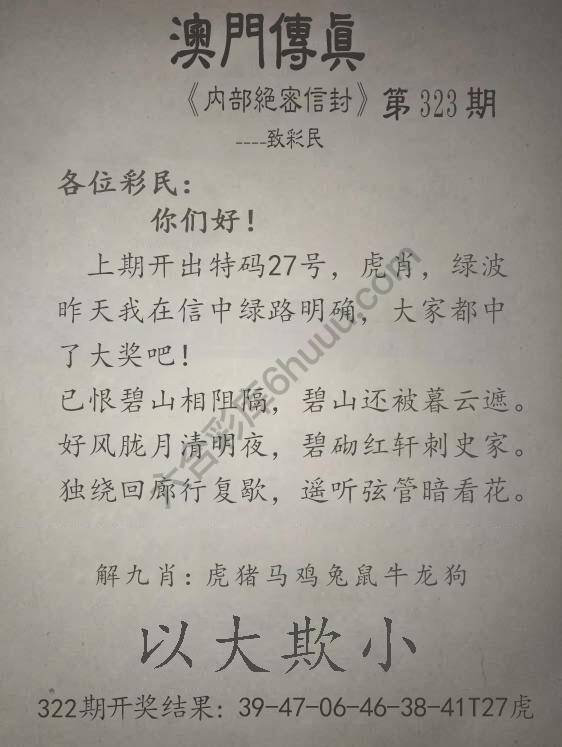 澳門傳眞
《内部絕密信封》第323期
----致彩民
各位彩民：
你们好！
上期开出特码27号，虎肖，绿波
昨天我在信中绿路明确，大家都中
了大奖吧！
已恨碧山相阻隔，碧山还被暮云遮。
好风胧月清明夜，碧砌红轩刺史家。
独绕回廊行复歇，遥听弦管暗看花。
解九肖：虎猪马鸡兔鼠牛龙狗
以大欺小
322期开奖结果：39-47-06-46-38-41T27虎
六合彩库6huuu.com